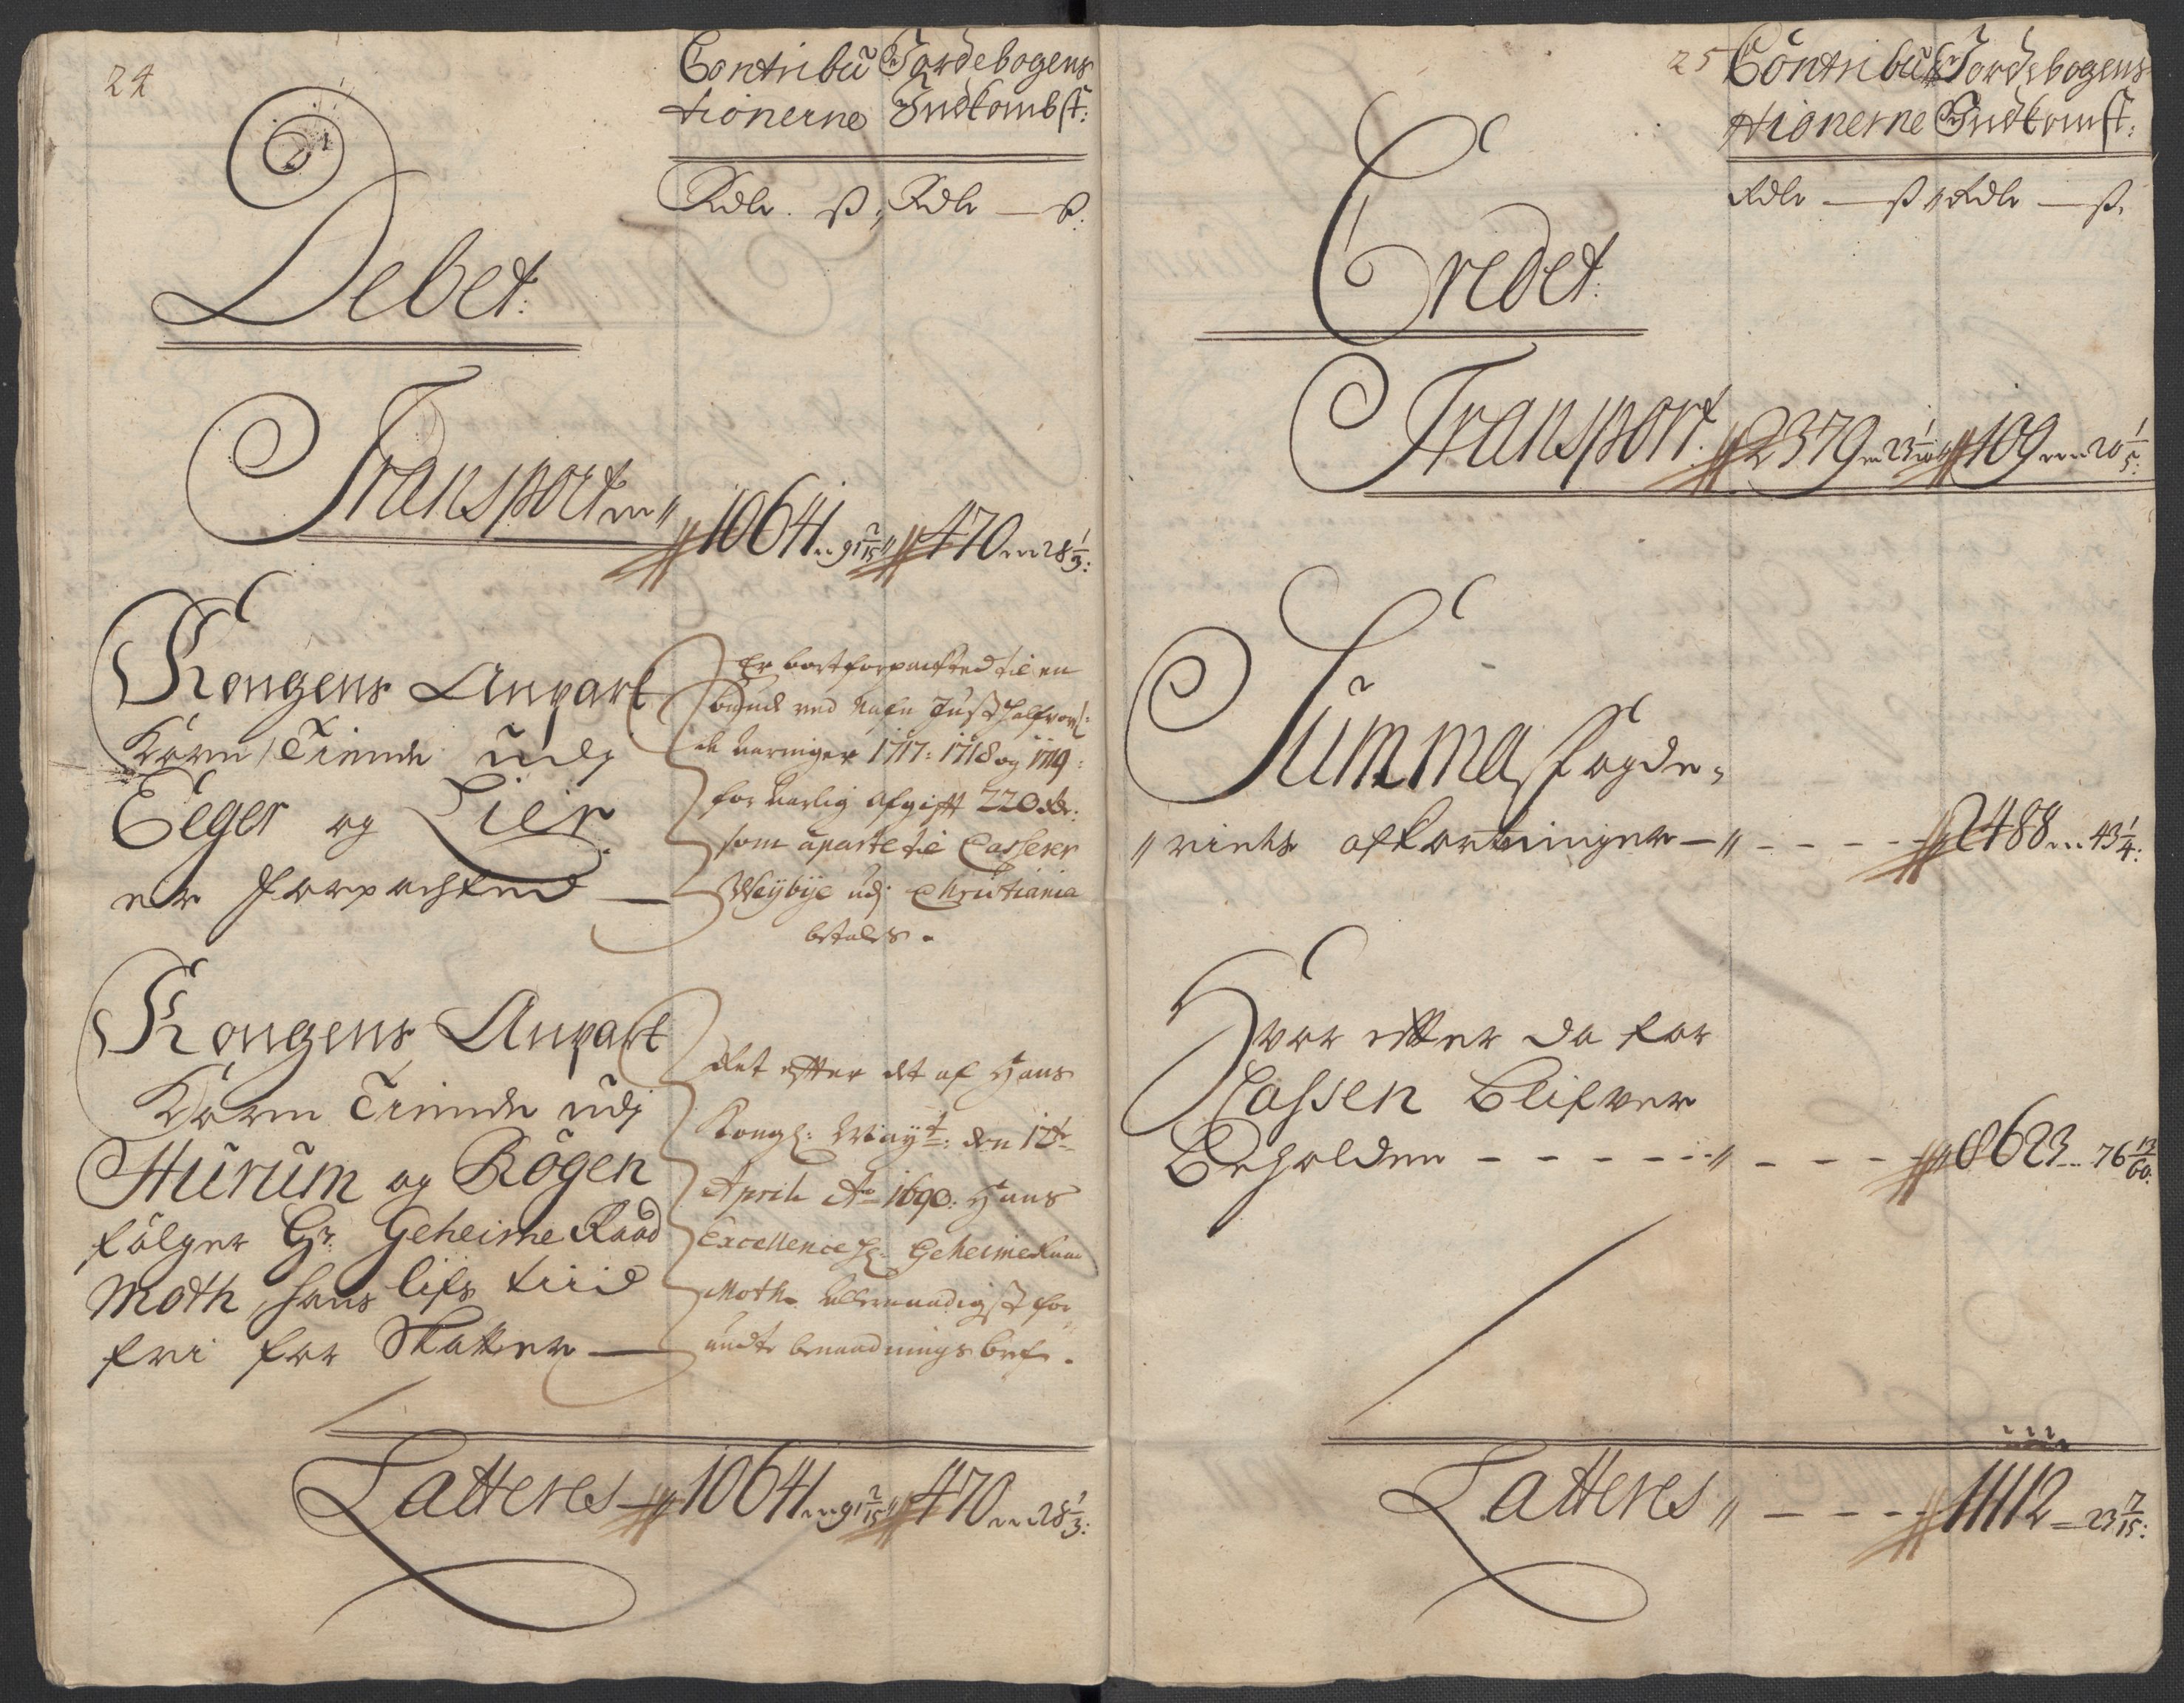 24
Contribu Jordebogens
tionerne Indkombst:
Rdlr. ß; Rdlr — ß.
Debet:
Transport 10641 „ 91 2/15 „ 470 „ 28 1/3:
Kongens Anpart
Korn Tiende udj
Eeger og Lier
er forpachted —
Er bortforpachted til en
Mand ved Nafn Just Halfvors:
de aaringer 1717: 1718 og 1719:
for aarlig afgift 220 Rdr:
som aparte til Casserer
Weybye udj Christiania
betales.
Kongens Anpart
Korn Tiende udj
Hurum og Rögen
fölger Hr: Geheime Raad
Moth, hans lifs tiid
fri for Skatter —
Alt efter det af Hans
Kongl: May^t: den 12^te
April A^o 1690. Hans
Excellence Hr: Geheime Raad
Moth Allernaadigst for„
undte benaadnings bref.
Latteres 10641 „ 91 2/15 „ 470 „ 28 1/3:
25
Contribu Jordebogens
tionerne Indkomst:
Rdlr — ß „ Rdlr — ß.
Credet:
Transport. 2379 „ 23 „ 109 „ 20 1/5:
Summa fogde„
„riets afkortninger — „ - - - - 2488 „ 43 1/4:
Hvor efter da for
Cassen Blifver
Beholden - - - - - „ - - - - 8623 „ 76 13/60.
Latteres „ - - - - 11112 — 23 7/15: